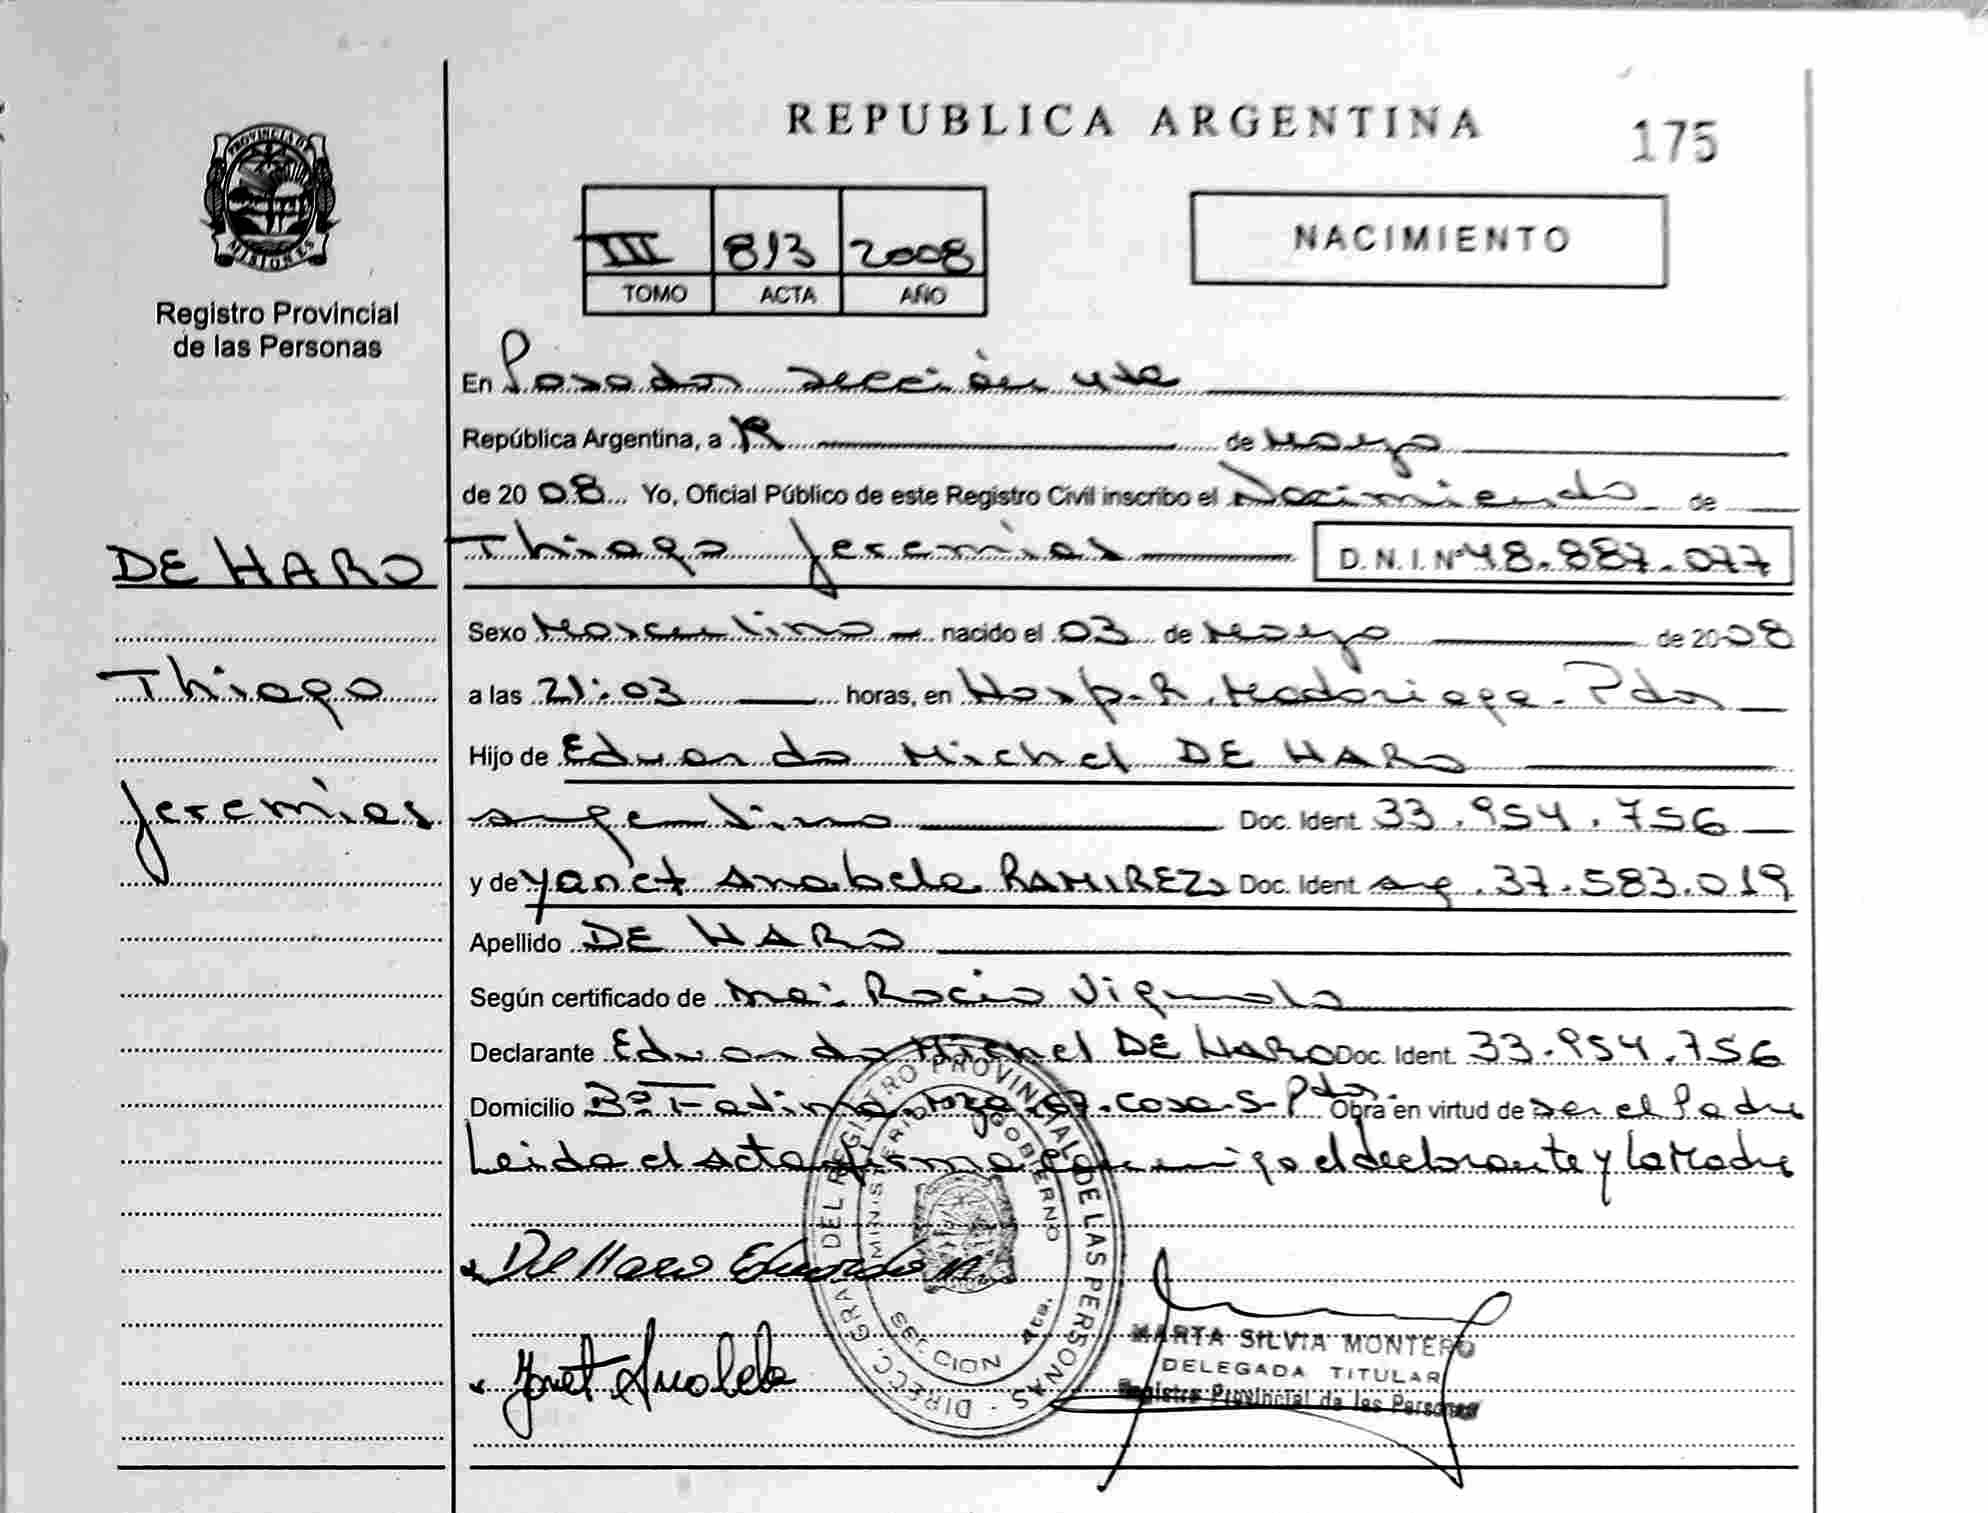 REPUBLICA ARGENTINA
175
PROVINCIA DE MISIONES
Registro Provincial
de las Personas
III 813 2008
TOMO ACTA AÑO
NACIMIENTO
En Posadas sección
República Argentina, a de Mayo
de 2008 Yo, Oficial Público de este Registro Civil inscribo el Nacimiento de
DE HARO
Thiago
Jeremías
Thiago Jeremías D.N.I. Nº 48.887.077
Sexo Masculino nacido el 03 de Mayo de 2008
a las 21:03 horas, en Hosp. R. Madariaga - Pdas
Hijo de Eduardo Michel DE HARO
argentino Doc. Ident. 33.954.756
y de Yanet Anabela RAMIREZ Doc. Ident. arg. 37.583.019
Apellido DE HARO
Según certificado de Rocio Vignola
Declarante Eduardo Michel DE HARO Doc. Ident. 33.954.756
Domicilio Bº Fatima Mza casa Pdas Obra en virtud de ser el Padre
Leida el acta firma conmigo el declarante y la Madre
De Haro Eduardo M.
Yanet Anabela
DIRECC. GRAL. DEL REGISTRO PROVINCIAL DE LAS PERSONAS
MINISTERIO GOBIERNO
MARTA SILVIA MONTERO
DELEGADA TITULAR
Registro Provincial de las Personas